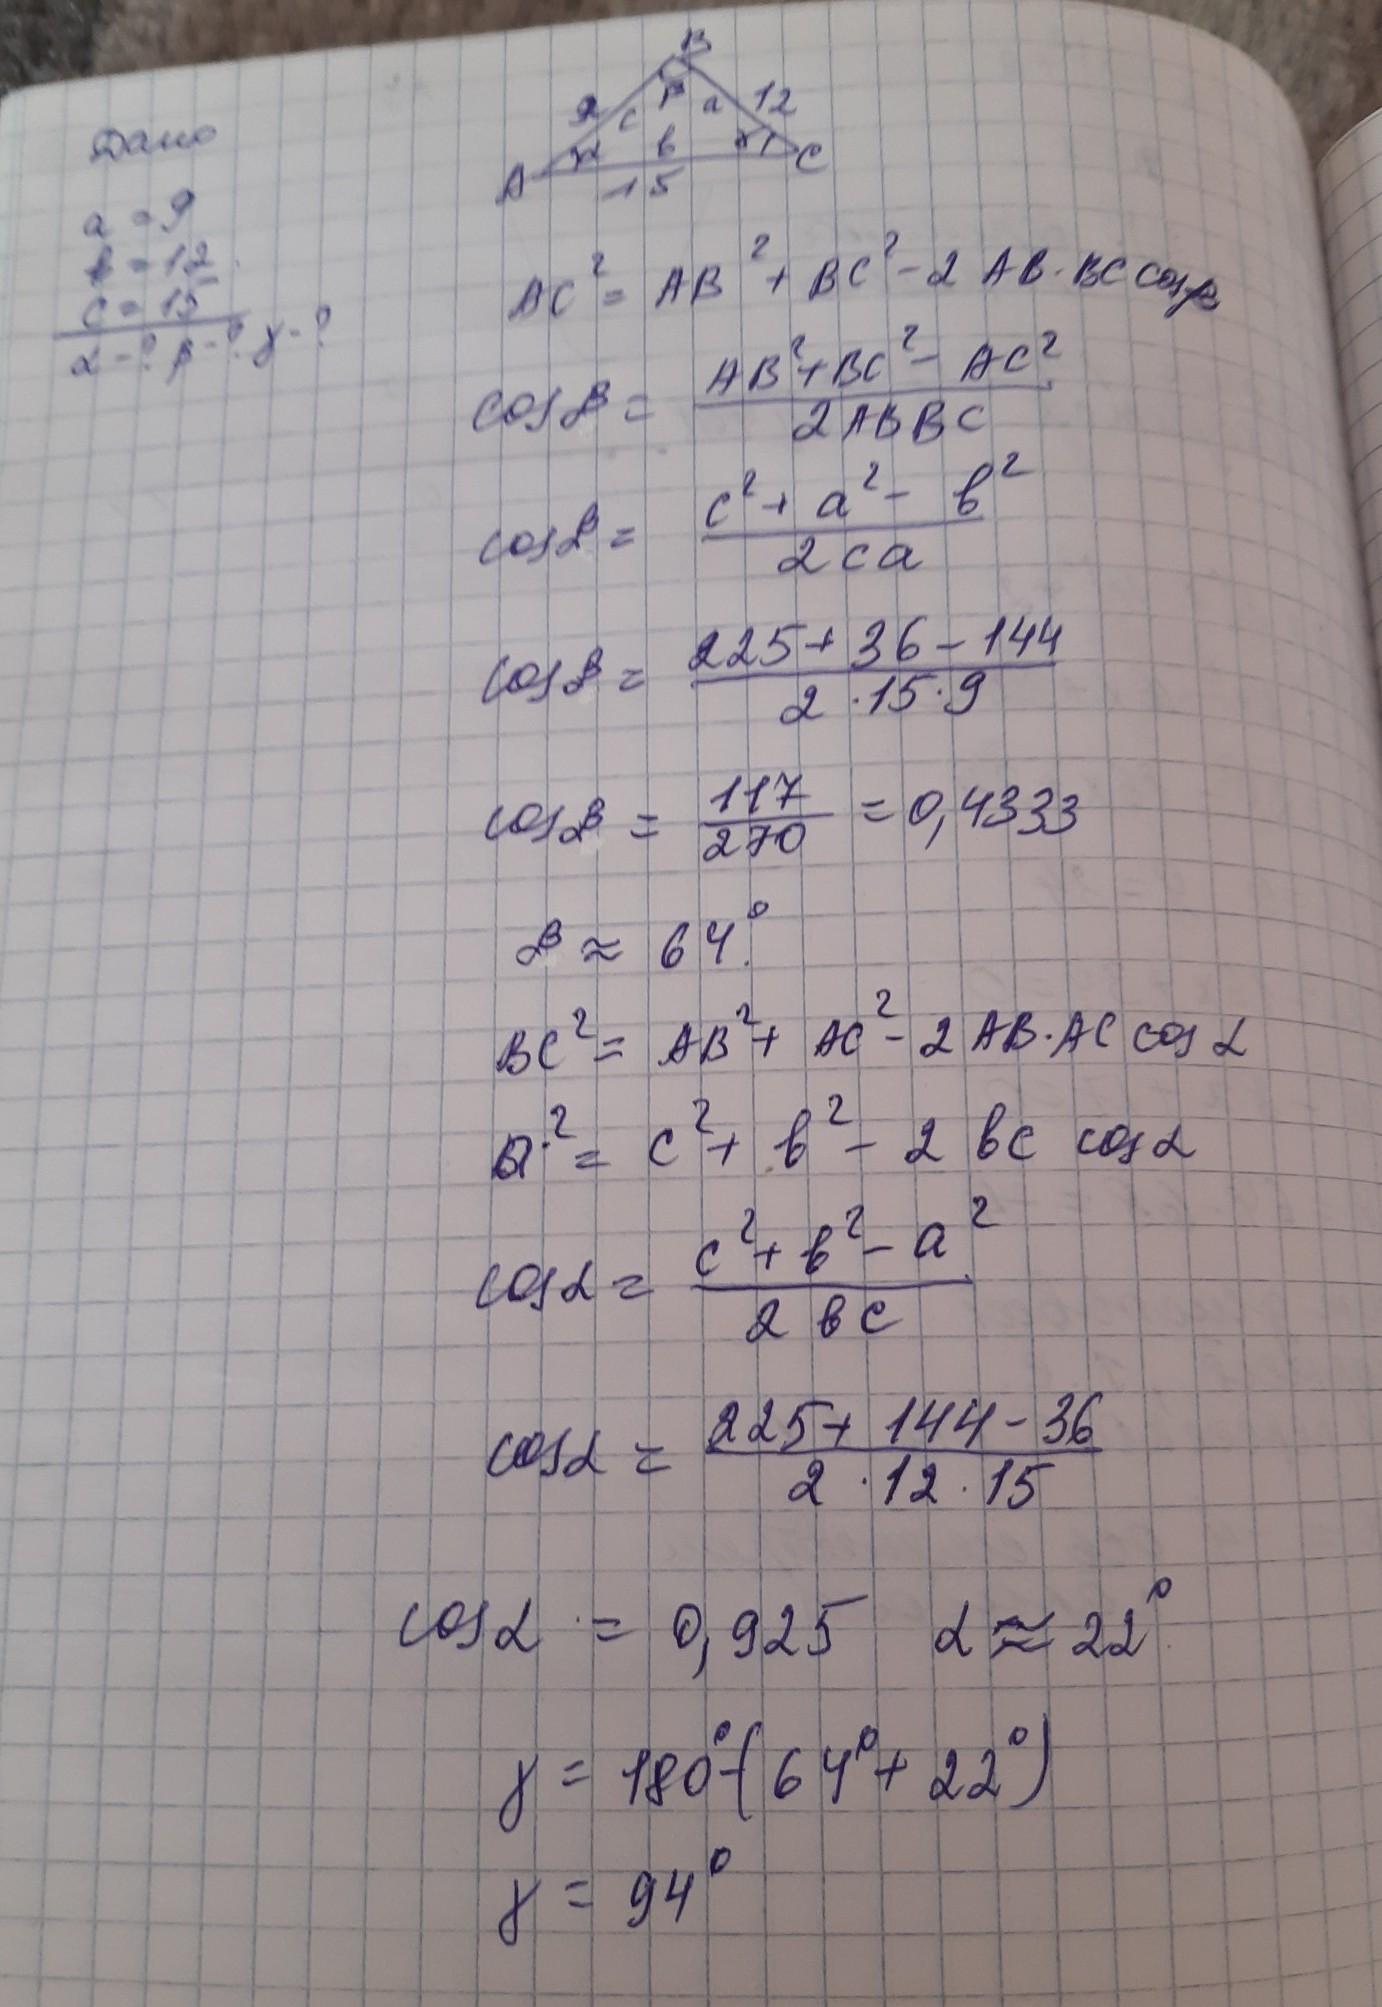 Дано
a = 9
b = 12
c = 15
α - ? β - ? γ - ?
B
9 c β a 12
A α b γ C
15
AC² = AB² + BC² - 2 AB · BC cos β
cos β = (AB² + BC² - AC²) / (2 AB BC)
cos β = (c² + a² - b²) / (2ca)
cos β = (225 + 36 - 144) / (2 · 15 · 9)
cos β = 117 / 270 = 0,4333
β ≈ 64°
BC² = AB² + AC² - 2 AB · AC cos α
a² = c² + b² - 2 bc cos α
cos α = (c² + b² - a²) / (2 bc)
cos α = (225 + 144 - 36) / (2 · 12 · 15)
cos α = 0,925 α ≈ 22°
γ = 180° - (64° + 22°)
γ = 94°